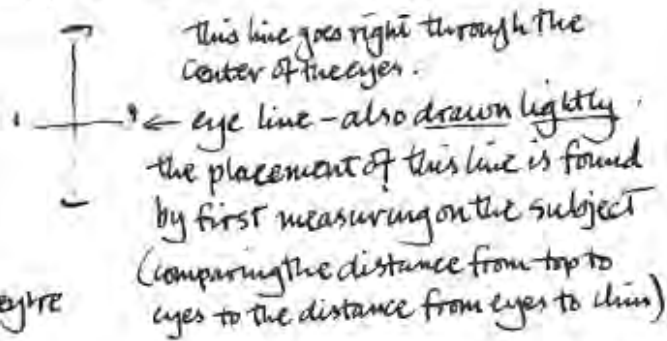 this line goes right through the
center of the eyes.
← eye line - also drawn lightly.
the placement of this line is found
by first measuring on the subject
(comparing the distance from top to
eyes to the distance from eyes to chin)